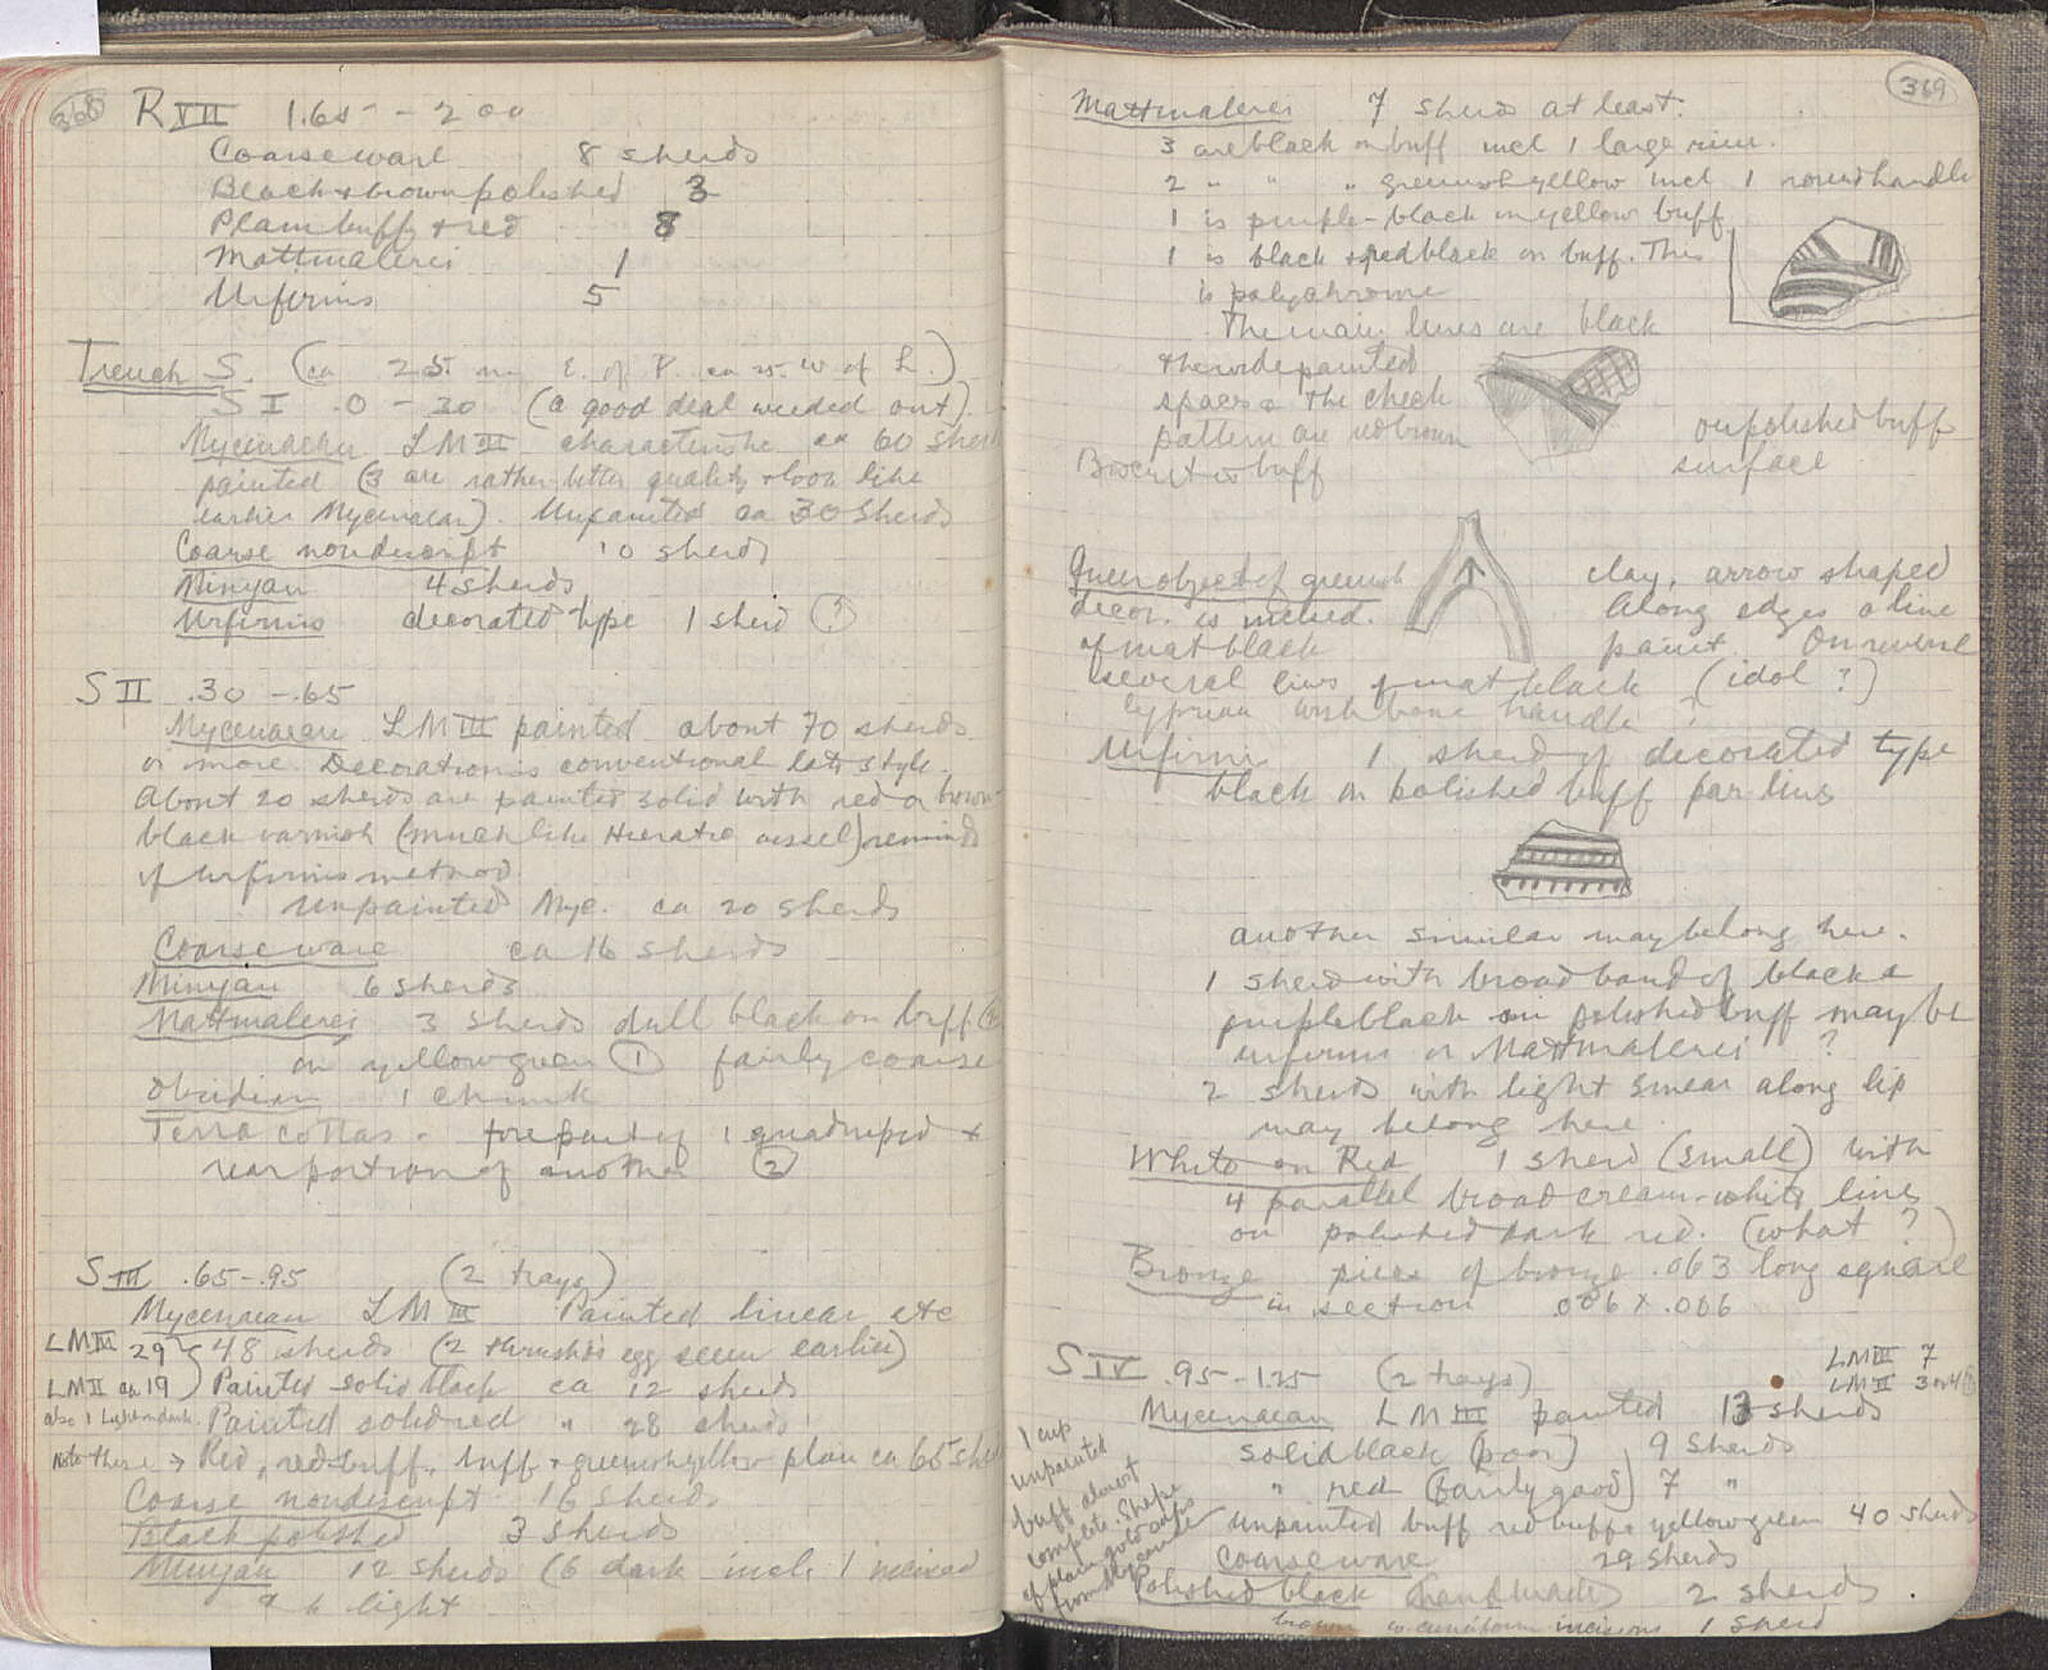 368
R VII 1.65 - 2 00
Coarse ware 8 sherds
Black & brown polished 3
Plain buff & red 8
Mattmalerei 1
Urfirnis 5
Trench S. (ca 25 m E. of P. ca 25 W of L.)
S I .0 - 30 (a good deal weeded out).
Mycenaean LM III characteristic ca 60 sherds
painted (3 are rather better quality & look like
earlier Mycenaean). Unpainted ca 30 sherds
Coarse nondescript 10 sherds
Minyan 4 sherds
Urfirnis decorated type 1 sherd
S II .30 - .65
Mycenaean LM III painted about 70 sherds
or more. Decoration is conventional late style.
About 20 sherds are painted solid with red or brown-
black varnish (much like Hieratic vessel) reminds
of Urfirnis method.
Unpainted Myc. ca 20 sherds
Coarse ware ca 16 sherds
Minyan 6 sherds
Mattmalerei 3 sherds dull black on buff
on yellow green 1 fairly coarse
Obsidian 1 chunk
Terra cottas - forepart of 1 quadruped &
rear portion of another 2
S III .65 - .95 (2 trays)
Mycenaean LM III Painted linear etc
LM III 29 48 sherds (2 thrush's egg seem earlier)
LM II ca 19 Painted solid black ca 12 sherds
also 1 Light on dark. Painted solid red " 28 sherds
Note these → Red, red-buff, buff & greenish yellow plain ca 65 sherds
Coarse nondescript 16 sherds
Black polished 3 sherds
Minyan 12 sherds (6 dark incl. 1 incised
& 6 light
369
Mattmalerei 7 sherds at least.
3 are black on buff incl 1 large rim.
2 " " " greenish yellow incl 1 round handle
1 is purple-black on yellow buff
1 is black & red black on buff. This
is polychrome
The main lines are black
the wide painted
spaces & the check
pattern are red brown on polished buff
Biscuit is buff surface
Queer object of greenish clay, arrow shaped
decor. is incised. Along edges a line
of mat black paint. On reverse
several lines of mat black (idol ?)
Cyprian wishbone handle ?
Urfirnis 1 sherd of decorated type
black on polished buff par lines
another similar may belong here.
1 sherd with broad band of black &
purple black on polished buff may be
urfirnis or Mattmalerei ?
2 sherds with light smear along lip
may belong here
White on Red 1 sherd (small) with
4 parallel broad cream-white lines
on polished dark red. (what ?)
Bronze piece of bronze .063 long square
in section .006 x .006
LM III 7
S IV .95 - 1.25 (2 trays) LM II 3 or 4
Mycenaean LM III painted 13 sherds
solid black (poor) 9 sherds
" red (fairly good) 7 "
unpainted buff red buff & yellow green 40 sherds
1 cup
unpainted
buff almost
complete. Shape
of plain gold cups
from Mycenae
Coarse ware 29 sherds
Polished black handmade 2 sherds
brown w. cuneiform incisions 1 sherd